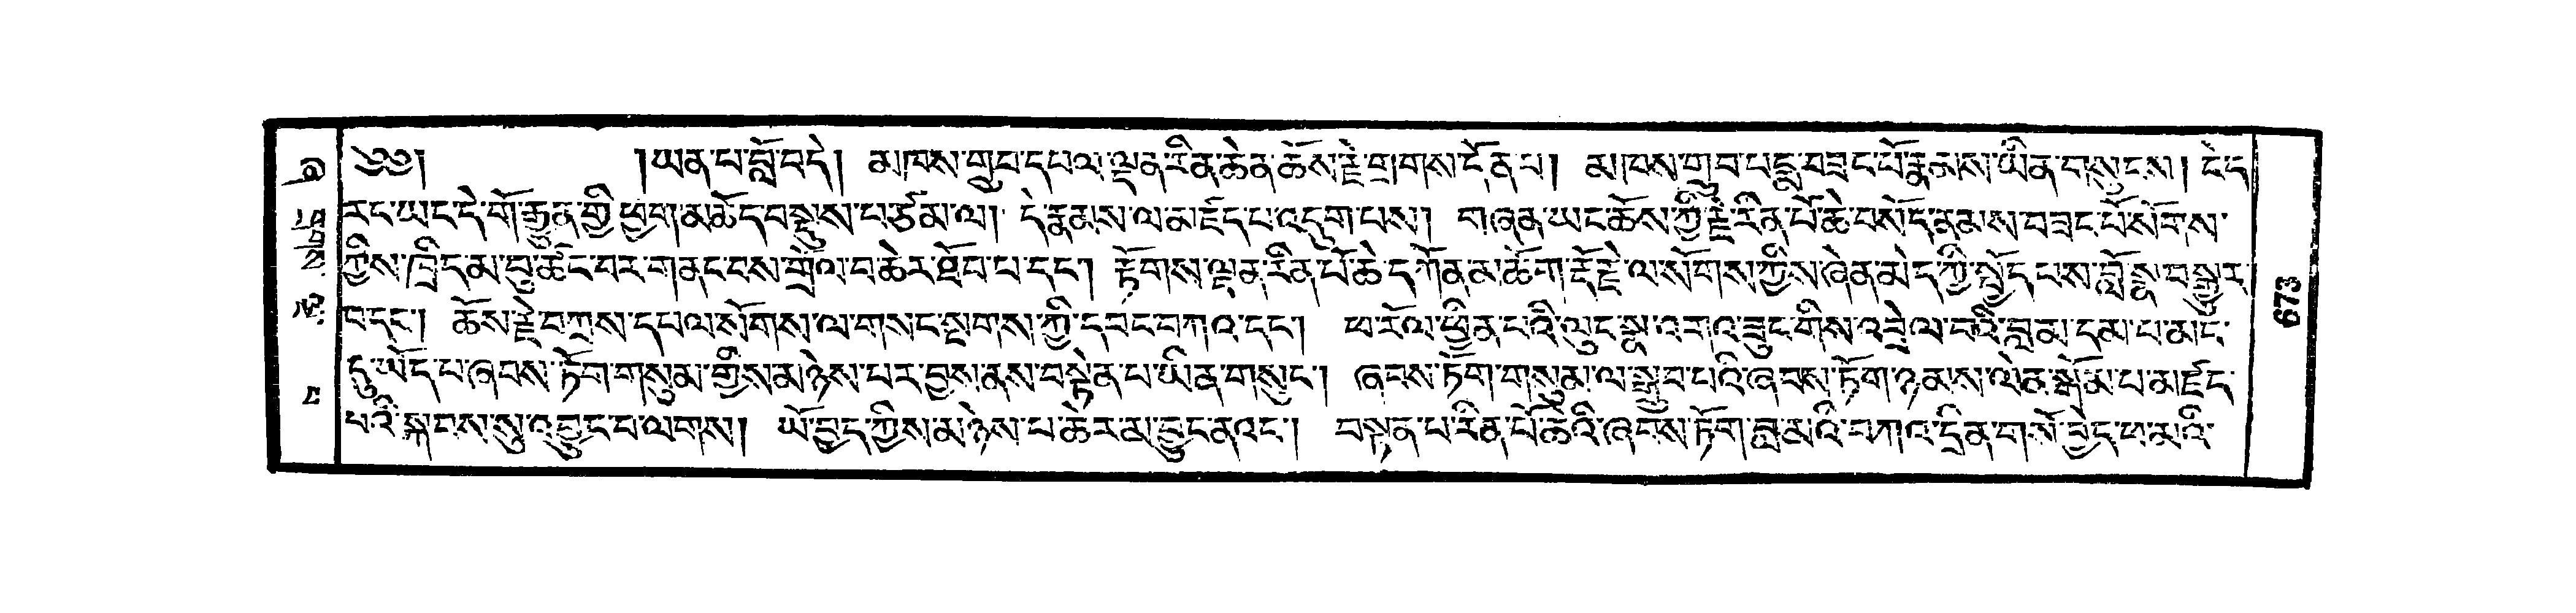 ༄༅། །ཡན་པ་བློ་བདེ། མཁས་གྲུབ་དཔལ་ལྡན་རིན་ཆེན་ཆོས་རྗེ་གྲགས་དོན་པ། མཁས་གྲུབ་པདྨ་བཟང་པོ་རྣམས་ཡིན་གསུངས། ངེད་
རང་ཡང་དེ་གོ་རྒྱུན་གྱི་ཕྱག་མཆོད་བསྡུས་པ་ཙམ་ལ། དེ་རྣམས་ལ་མཛད་པ་འདུག་པས། གཞན་ཡང་ཆོས་ཀྱི་རྗེ་རིན་པོ་ཆེ་བསོད་ནམས་བཟང་པོ་སོགས་
ཀྱིས་ཁྲིདམ་བུ་ཚོང་བར་གནང་བས་གྲེལ་བ་ཆེར་ཐོབ་པ་དང་། རྟོགས་ལྡན་རིན་པོ་ཆེ་དཀོན་མཆོག་རྡོ་རྗེ་ལ་སོགས་ཀྱིས་ཞེན་མེད་ཀྱི་སྤྱོད་པས་བློ་སྣ་བསྒྱུར་
བ་དང་། ཆོས་རྗེ་བཀྲས་དཔལ་སོགས་ལ་གསང་སྔགས་ཀྱི་དབང་བཀའ་དང་། ཕ་རོལ་ཕྱིན་པའི་ལུང་སྣ་འགའ་ཟུང་གིས་འབྲེལ་བའི་བླ་མ་དམ་པ་མང་
དུ་ཡོད་པ་ཞབས་ཏོག་གསུམ་གྱིས་མཉེས་པར་བྱས་ནས་བསྟེན་པ་ཡིན་གསུང་། ཞབས་ཏོག་གསུམ་ལ་སྒྲུབ་པའི་ཞབས་ཏོག་ཉམས་ལེན་སྒོམ་པ་མཛད་
པའི་སྐབས་སུ་འབྱུང་བ་ལགས། ཡོ་བྱད་ཀྱིས་མཉེས་པ་ཆེར་མ་བྱུང་ནའང་། བསྟན་པ་རིན་པོ་ཆེའི་ཞབས་ཏོག་བླ་མའི་བཀའ་དྲིན་གསོ་བྱེད་ཕ་མའི་